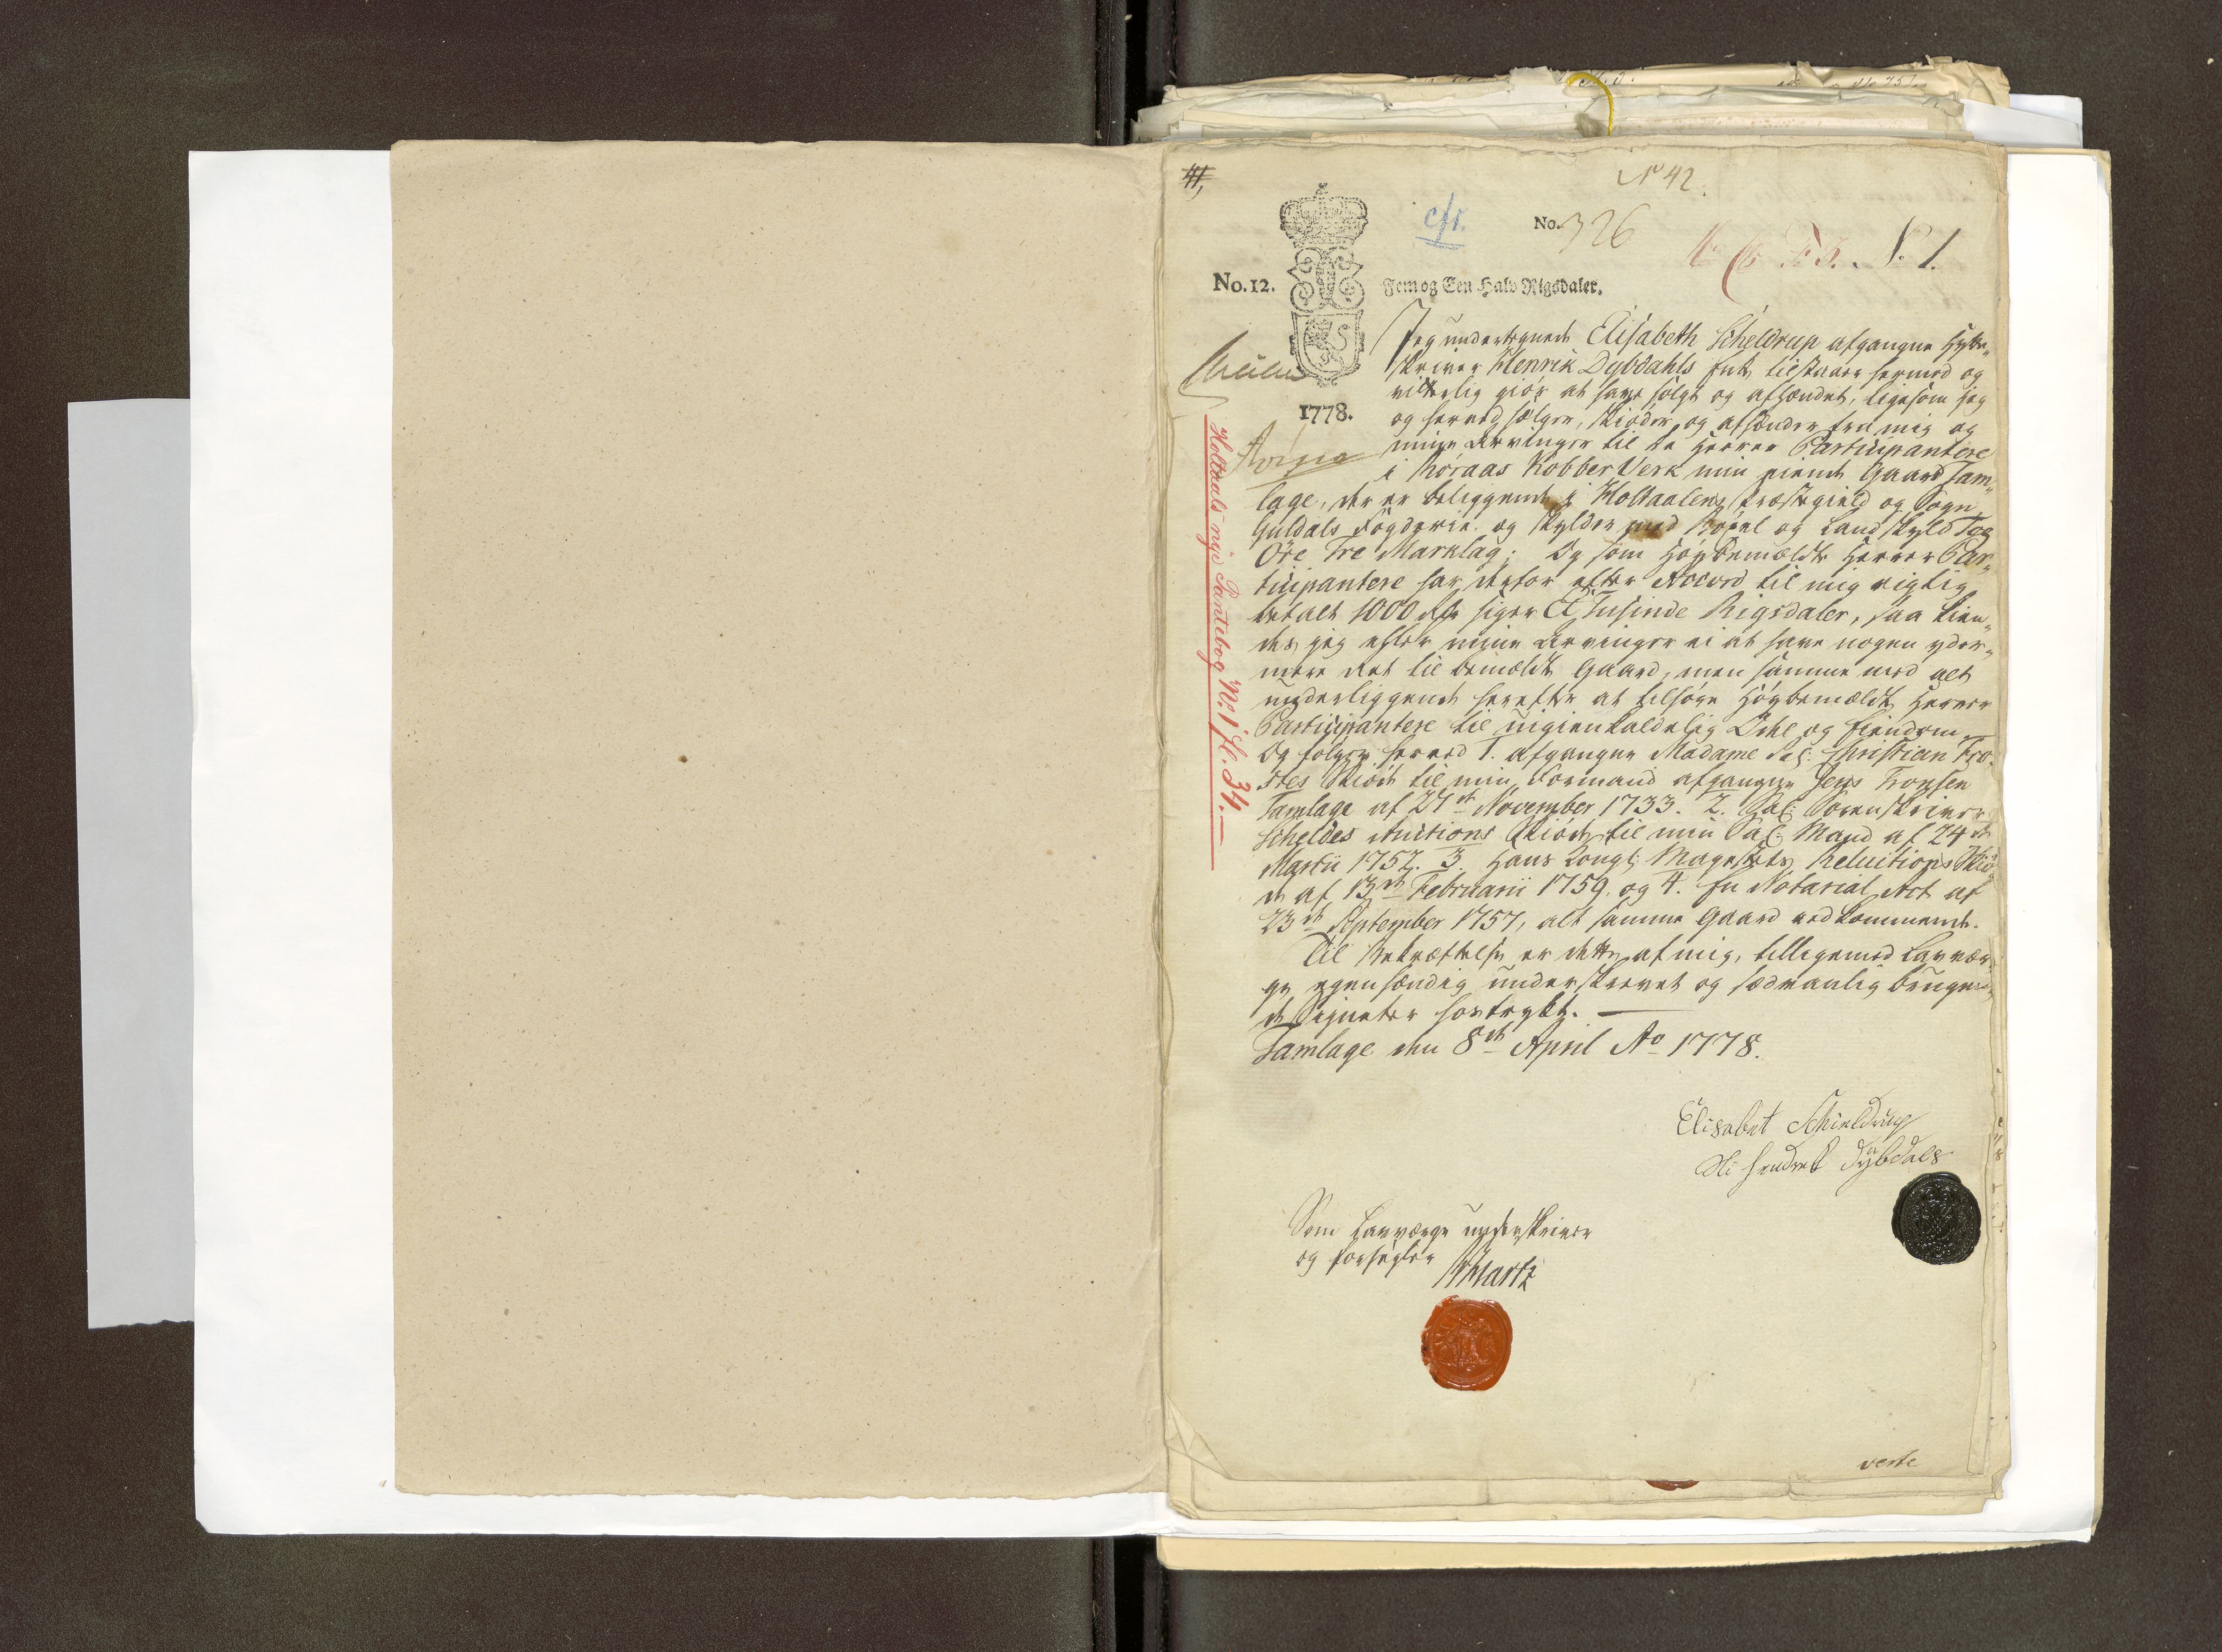 41,
N 42.
cfr.
No. 326
N. 1.
No. 12.
Fem og Een Halv Rigsdaler.
1778.
Holtaalens nye Pantebog No. 1 fl. 34.
Jeg undertegnede Elisabeth Scheldrup afgangne Hytte„
skriver Henrik Dybdahls Enke tilstaaer hermed og
vitterlig giør at have solgt og afhændet, ligesom jeg
og herved sælger, skiøder og afhænder fra mig og
mine Arvinger til de Herrer Participantere
i Røraas Kobber Verk min eiende Gaard Tam„
lage, der er beliggende i Holtaalens Præstegield og Sogn,
Guldals Fogderie. og skylder med Bøxel og Landskyld Toe
Øre Tre Marklag; Og som Høybemældte Herrer Par„
ticipantere har derfor efter Accord til mig rigtig
betalt 1000 Rdr siger Et Tusinde Rigsdaler, saa kien„
des jeg eller mine Arvinger ei at have nogen yder„
mere Ret til bemældte Gaard, men samme med alt
underliggende herefter at tilhøre Høybemældte Herrer
Participantere til uigienkaldelig Odel og Eiendom.
Og følger herved 1. afgangne Madame Sal: Christian Fro„
stes Skiøde til min Formand afgangne Jens Tronsen
Tamlage af 27de November 1733. 2. Sal: Sorenskriver
Scheldes Auctions Skiøde til min Sal: Mand af 24de
Martii 1757. 3. Hans Kongl: Mayestets Reluitions Skiø„
de af 13de Februarii 1759. og 4. En Notarial Act af
23de September 1757, alt samme Gaard vedkommende.
Til Bekræftelse er dette af mig, tilligemed Lavvær„
ge egenhændig underskrevet og sædvanlig brugen„
de Signeter hostrykt.
Tamlage den 8de April Ao 1778.
Elisabet Schieldrup
Sl: Hendrik Dybdals
Som Lavværge underskriver
og forsegler
verte